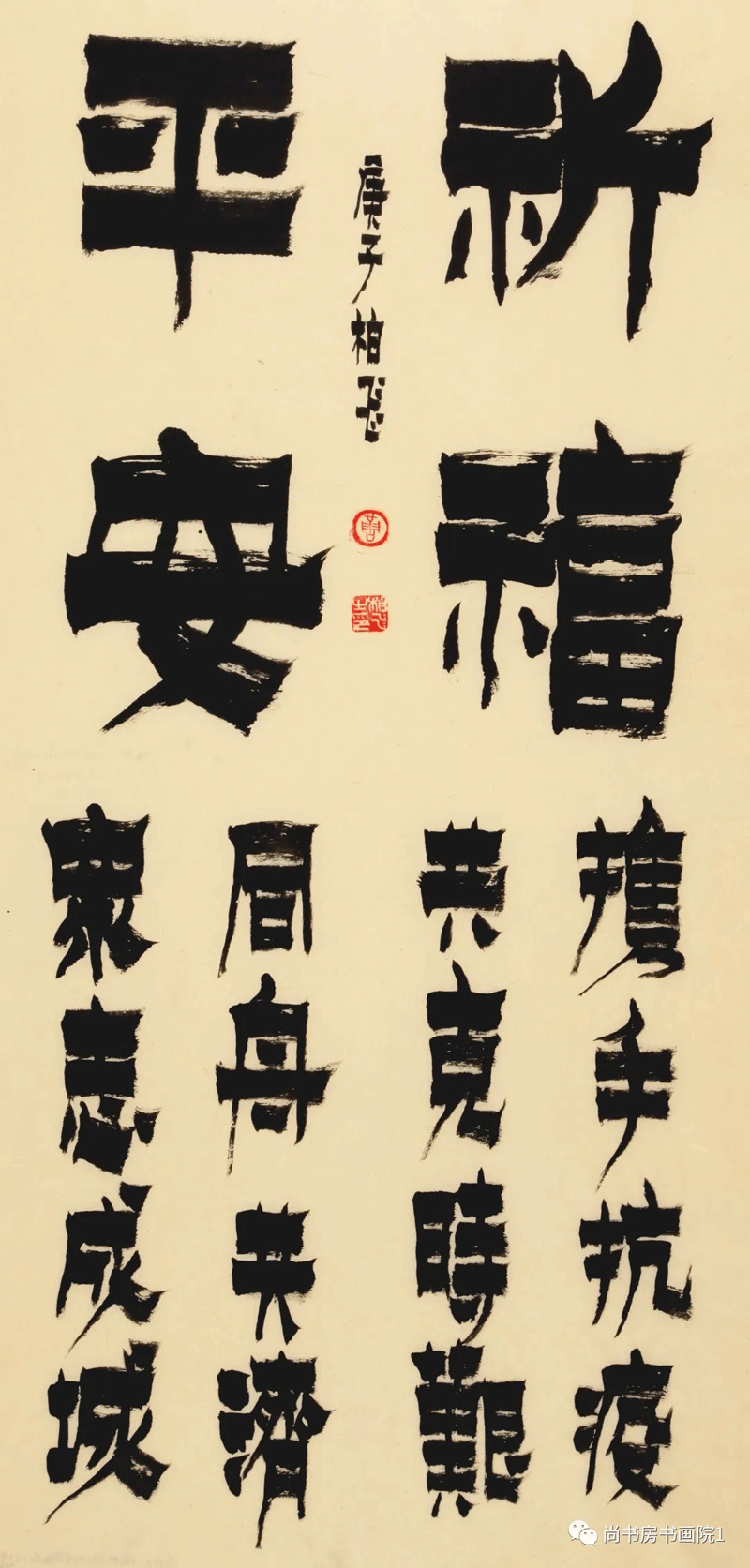 祈福
平安
携手抗疫
共克時艱
同舟共濟
衆志成城
庚子柏飞
尚书房书画院1